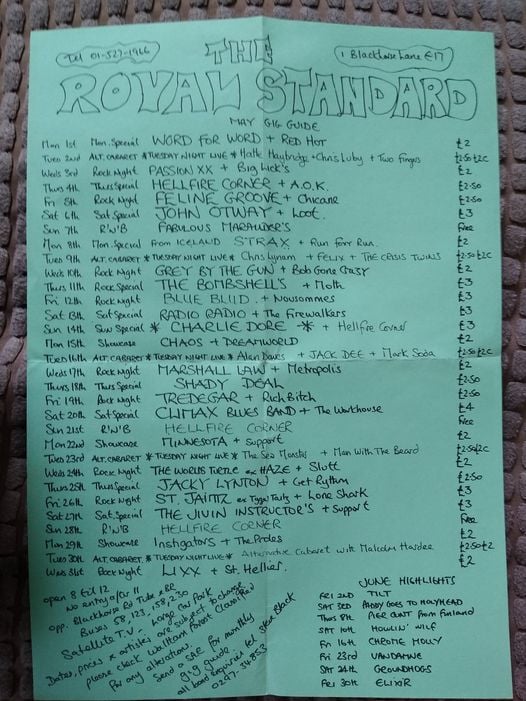 Tel 01-527-1966
1 Blackhorse Lane E17
THE
ROYAL STANDARD
MAY GIG GUIDE
Mon 1st Mon. Special WORD FOR WORD + RED HOT £2
Tues 2nd ALT. CABARET *TUESDAY NIGHT LIVE* Hattie Hayridge + Chris Luby + Two Fingers £2.50/£2c
Weds 3rd Rock Night PASSION XX + Big Licks £2
Thurs 4th Thurs Special HELLFIRE CORNER + A.O.K. £2.50
Fri 5th Rock Night FELINE GROOVE + Chicane £2.50
Sat 6th Sat Special JOHN OTWAY + Loot. £3
Sun 7th R'n'B FABULOUS MARAUDER'S Free
Mon 8th Mon. Special from ICELAND STRAX + Run Forr Run. £2
Tues 9th ALT. CABARET *TUESDAY NIGHT LIVE* Chris Lynam + FELIX + THE CRISIS TWINS £2.50/£2c
Weds 10th Rock Night GREY BY THE GUN + Bob Gone Crazy £2
Thurs 11th Rock Special THE BOMBSHELL'S + Moth £3
Fri 12th Rock Night BLUE BLUD. + Nousommes £3
Sat 13th Sat Special RADIO RADIO + The Firewalkers £3
Sun 14th Sun Special * CHARLIE DORE * + Hellfire Corner £3
Mon 15th Showcase CHAOS + DREAMWORLD £2
Tues 16th ALT. CABARET *TUESDAY NIGHT LIVE* Alan Davies + JACK DEE + Mark Soda £2.50/£2c
Weds 17th Rock Night MARSHALL LAW + Metropolis £2
Thurs 18th Thurs Special SHADY DEAL £2.50
Fri 19th Rock Night TREDEGAR + Rich Bitch £2.50
Sat 20th Sat Special CLIMAX BLUES BAND + The Warthouse £4
Sun 21st R'n'B HELLFIRE CORNER Free
Mon 22nd Showcase MINNESOTA + Support £2
Tues 23rd ALT. CABARET *TUESDAY NIGHT LIVE* The Sea Monster + Man With The Beard £2.50/£2c
Weds 24th Rock Night THE WORLDS TURTLE ex HAZE + Slott £2
Thurs 25th Thurs Special JACKY LYNTON + Get Rythm £2.50
Fri 26th Rock Night ST. JAIMZ ex Tygers Tails + Lone Shark £3
Sat 27th Sat. Special THE JIVIN INSTRUCTOR'S + Support £3
Sun 28th R'n'B HELLFIRE CORNER Free
Mon 29th Showcase Instigators + The Probes £2
Tues 30th ALT. CABARET *TUESDAY NIGHT LIVE* Alternative Cabaret with Malcolm Hardee £2.50/£2
Weds 31st Rock Night LIXX + St. Hellier. £2
open 8 til 12
No entry after 11
opp. Blackhorse Rd Tube & BR
Buses 58, 123, 158, 230
Satellite T.V. - Large Car Park
Dates, prices & artistes are subject to change
please check Waltham Forest Classified
For any alteration.
Send a SAE for monthly
gig guide
all band enquiries tel Steve Black
0247-34853
JUNE HIGHLIGHTS
FRI 2ND TILT
SAT 3RD PADDY GOES TO HOLYHEAD
Thurs 8th PEER GUNT from Finland
SAT 10th HOWLIN' WILF
Fri 16th CHROME MOLLY
Fri 23rd VANDAMNE
SAT 24th GROUNDHOGS
FRI 30th ELIXIR